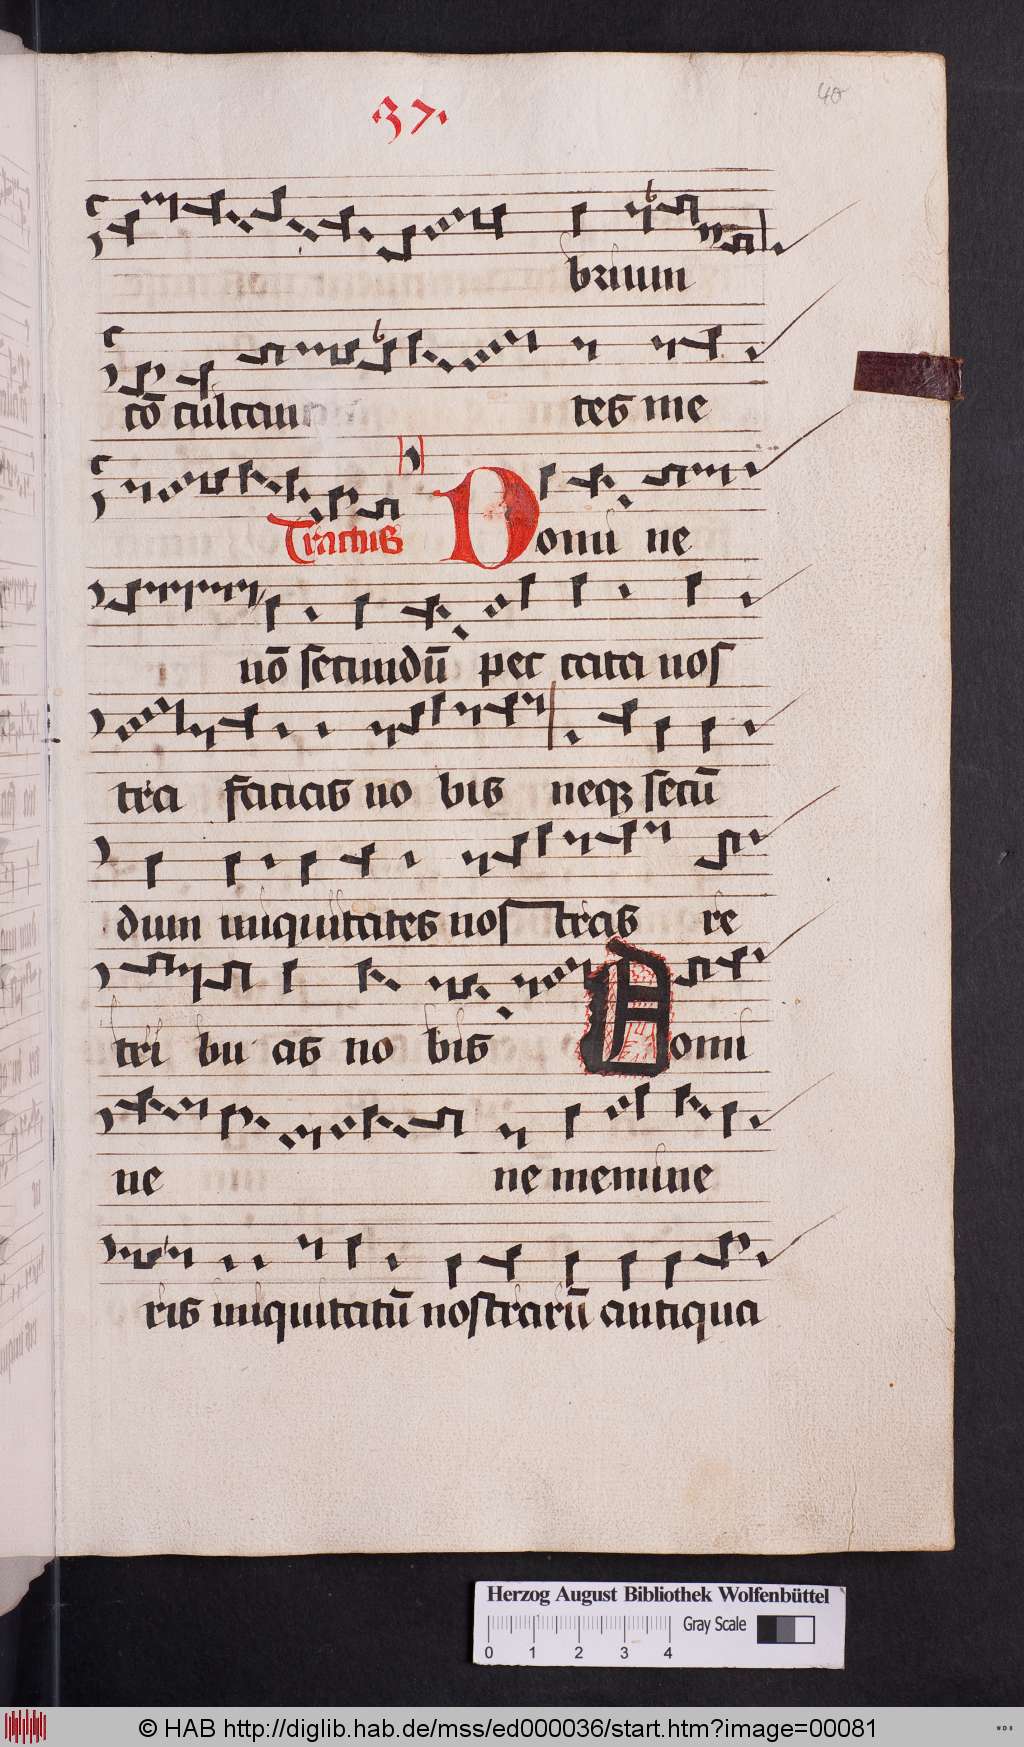 .37.
40
brium
cō culcan tes me
Tractus Domi ne
nō secundū pec cata nos
tra facias no bis neqꝫ secū
dum iniquitates nos tras re
tri bu as no bis Domi
ne ne memine
ris iniquitatū nostrarū antiqua
Herzog August Bibliothek Wolfenbüttel
Gray Scale
0 1 2 3 4
© HAB http://diglib.hab.de/mss/ed000036/start.htm?image=00081